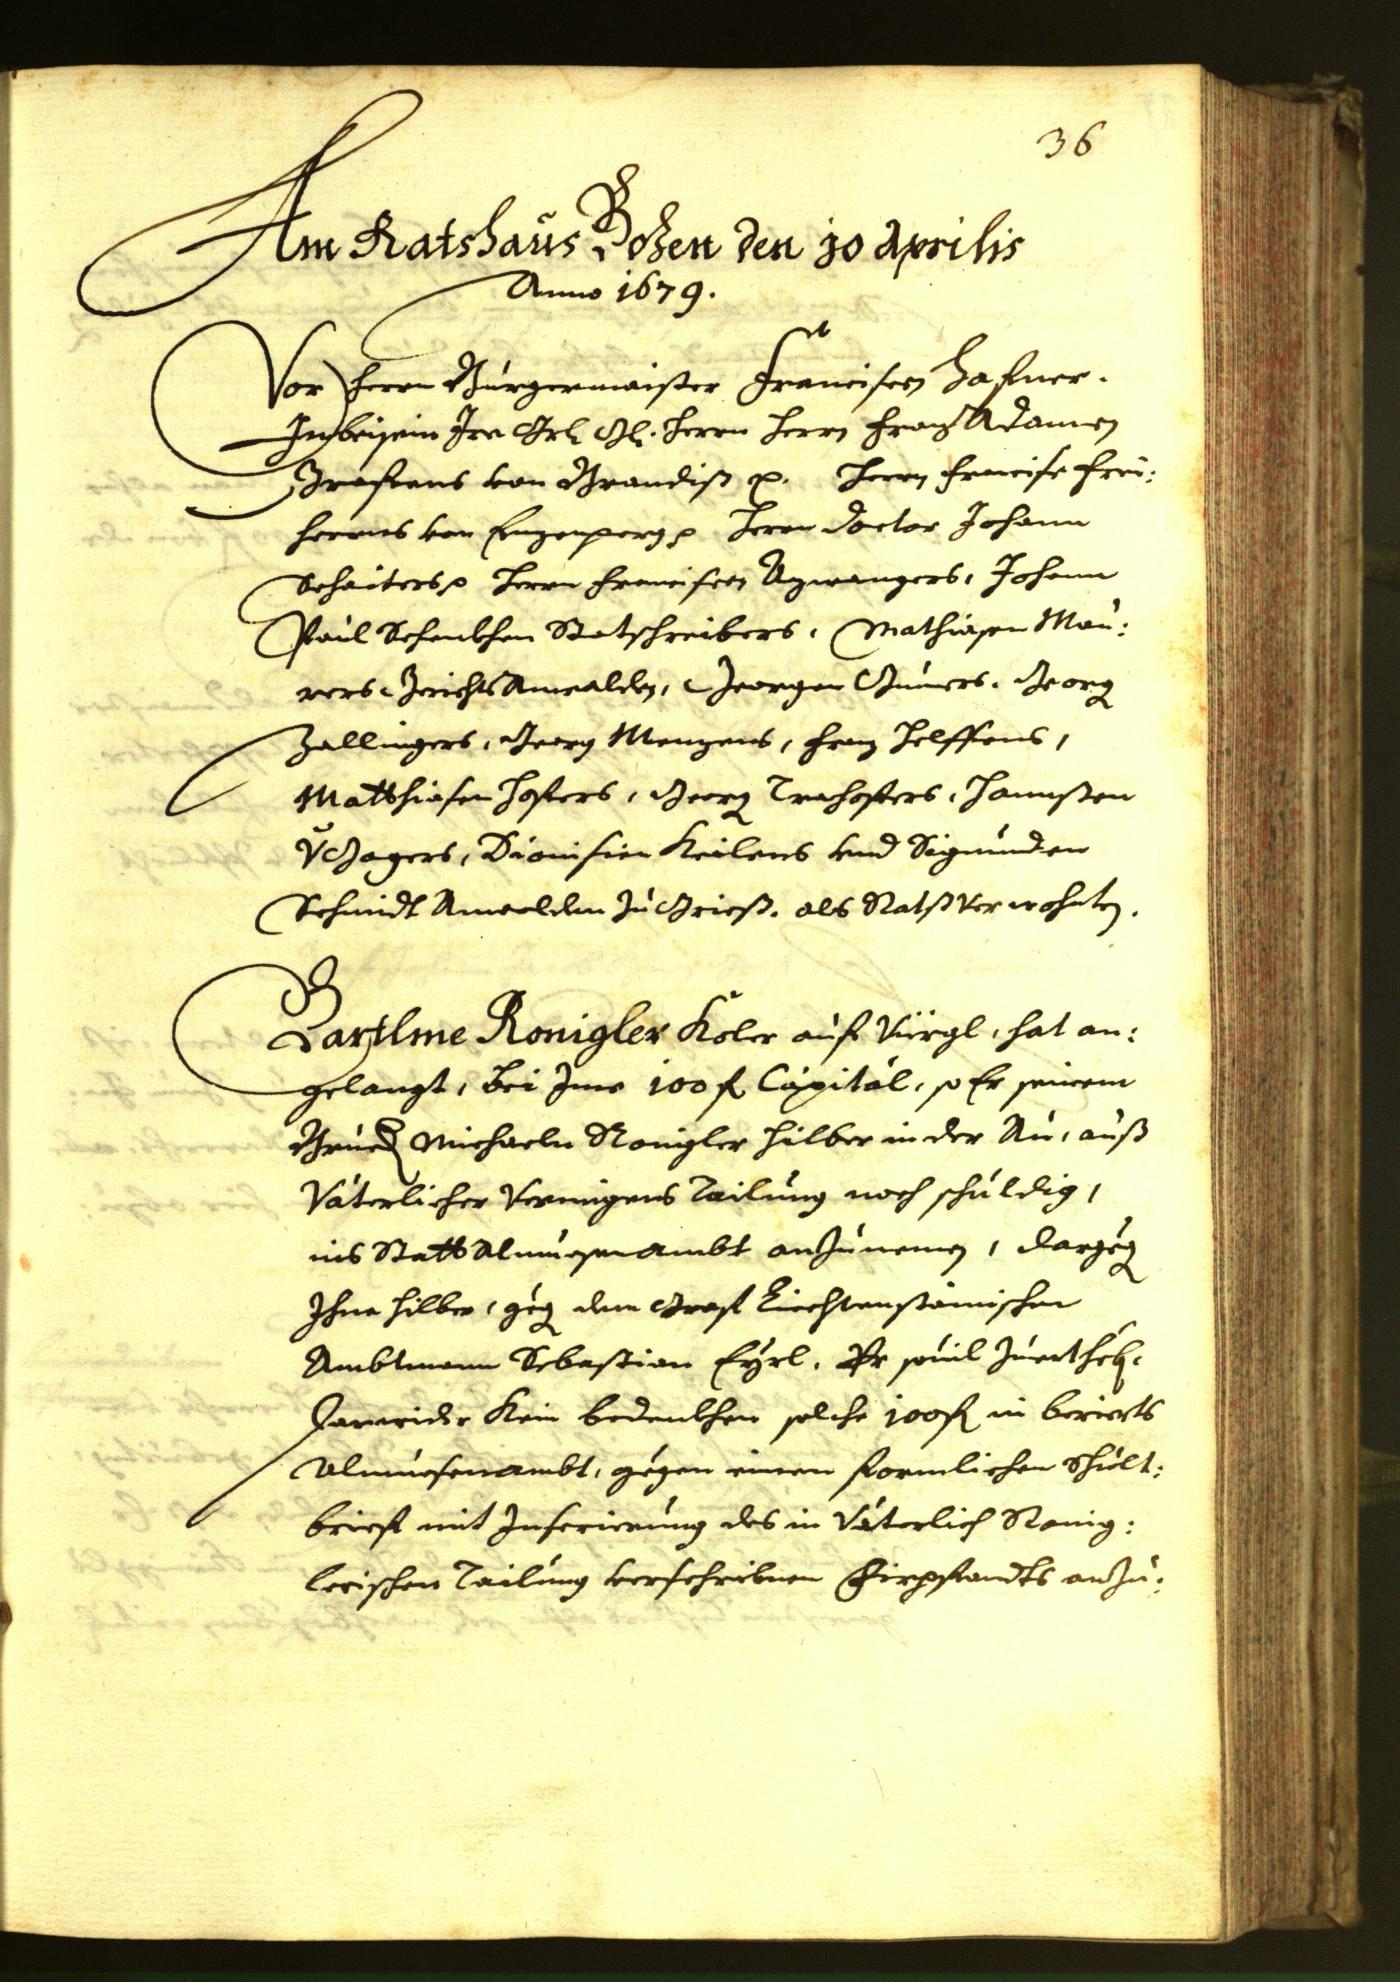 36
Am Ratshaus Bozen den 10 Aprilis
Anno 1679.
Vor Herrn Burgermaister Francisen Hafner.
In beisein Irr Hern Herrn Franz Adamen
Graffens von Brandiß p. Herrn Francise Frei:
herrns von Enzenperg p Herrn Doctor Johann
Schaiters p Herrn Francisen Azwangers, Johann
Paul Schenkhen Statschreibers, Mathiasen Mau:
rers Gerichts Anwalden, Georgen Georg
Zallingers, Georg Menzens, Franz Helffens,
Matthiasen Hofers, Georg Trahofers, Hannßen
Dionisien Keilens vnd Sigmunden
Schmidt Anwalden zu Grieß. als Ratßverwohnten.
Bartlme Ronigler Koler auf Virgl, hat an:
gelangt, bei Ime 100 f Capital, so Er seinem
Brued Michaeln Ronigler Hilber in der Au, auß
Väterlicher Vermigens Tailung noch schuldig,
ins Statt Almuesenambt anzunemen, dargeg
Ihne Hilber, geg dem Graf Liechtenstainischen
Ambtmann Sebastian Eyrl. Pr souil
Darwider Kein bedenkhen solche 100 f in berierts
Almuesenambt, gegen einen formlichen Schult:
brief mit Inserierung des in Väterlich Ronig:
lerischen Tailung verschribnen Firpfandts anzu: